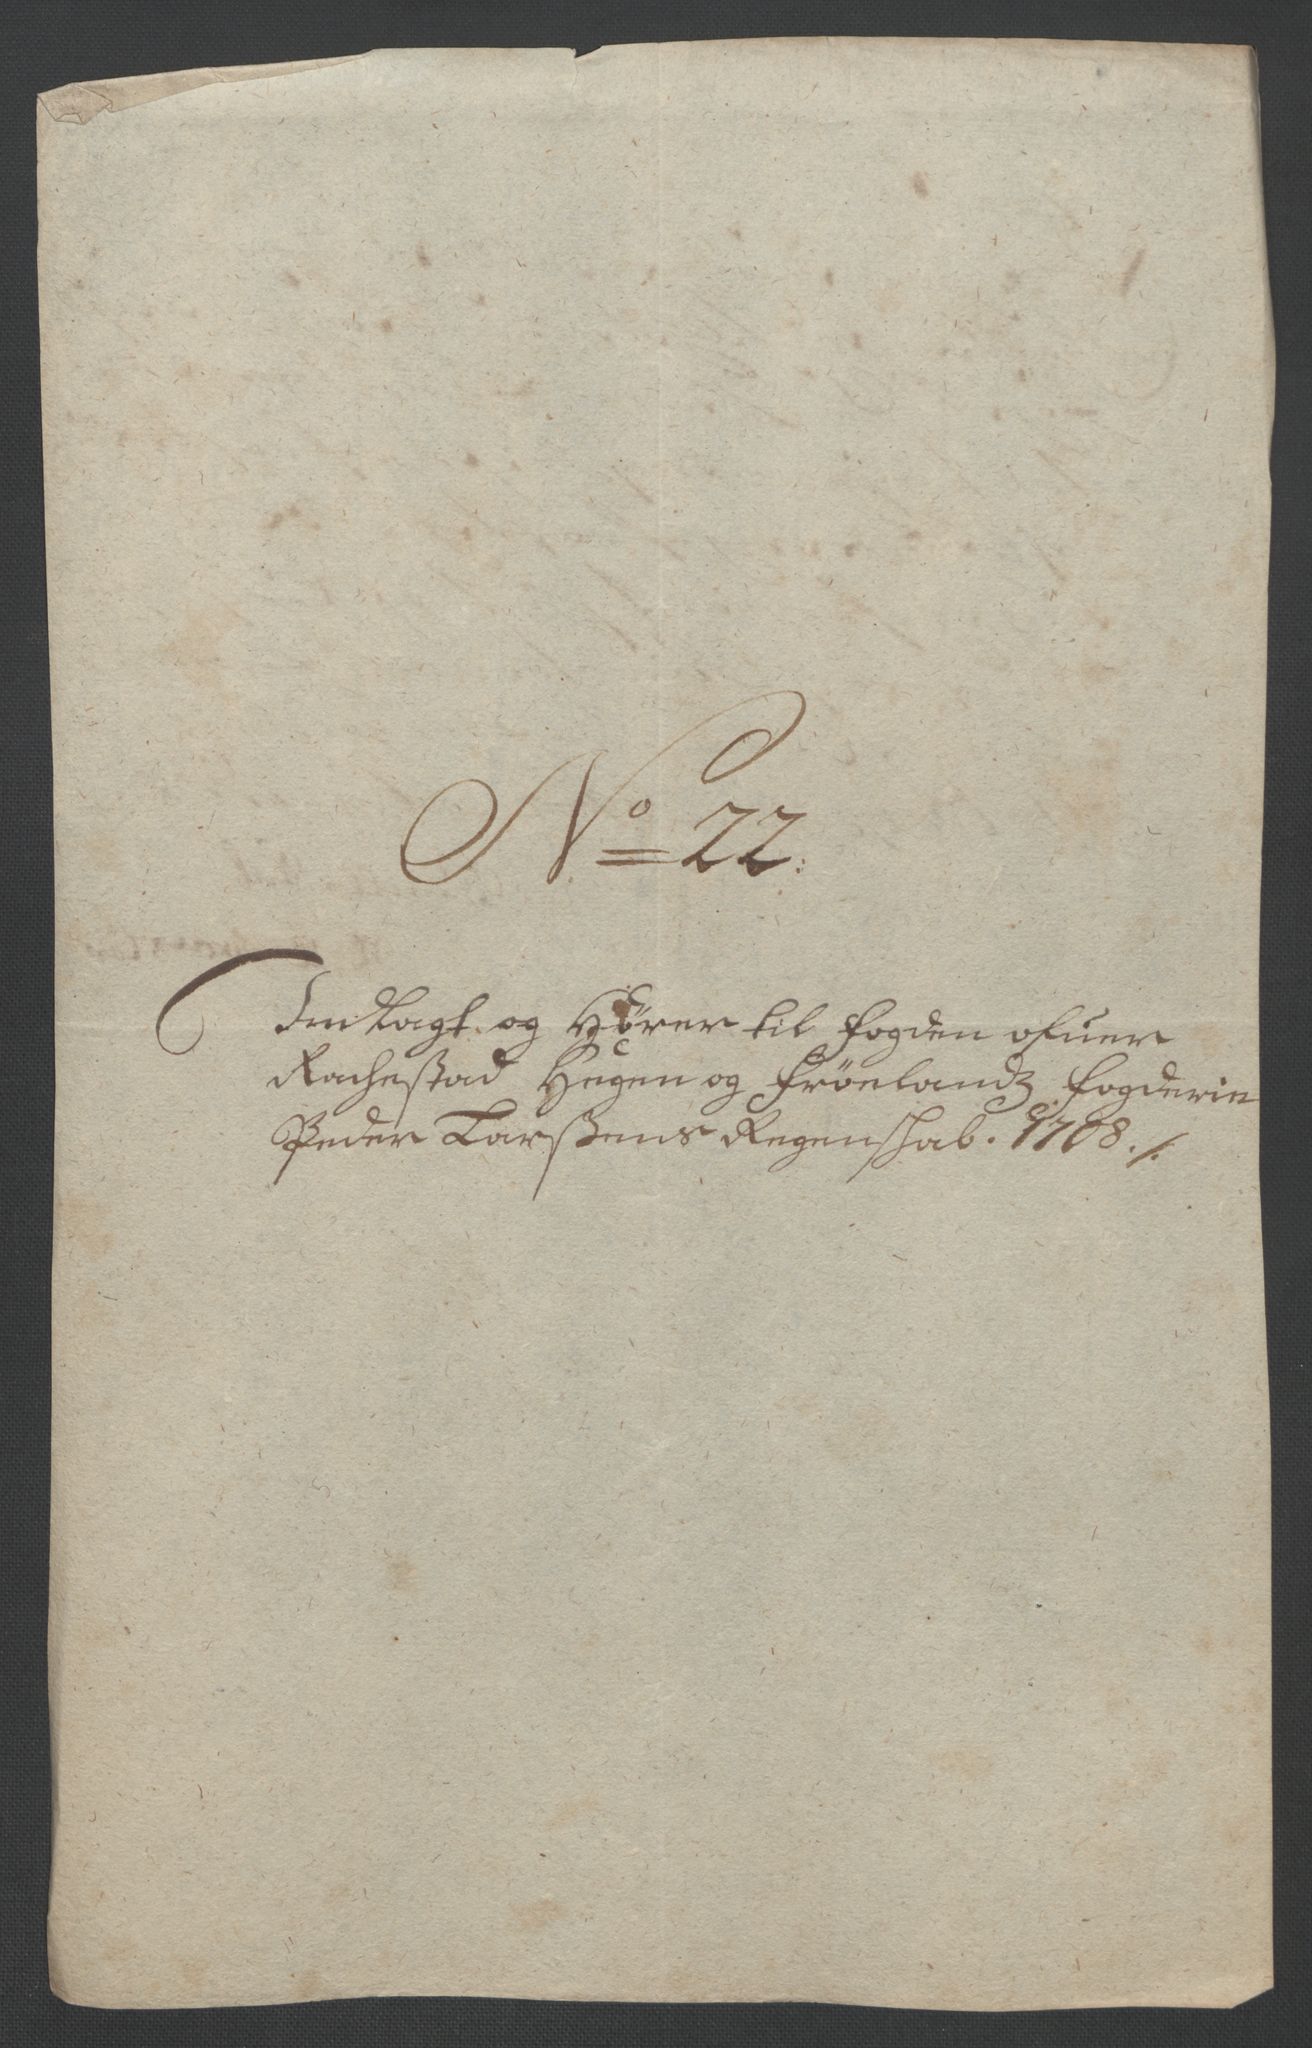 No 22.
Indlagt og Hører til fogden ofuer
Rachestad Heggen og Frøelandz fogderie
Peder Larßens Regenschab. 1708./.